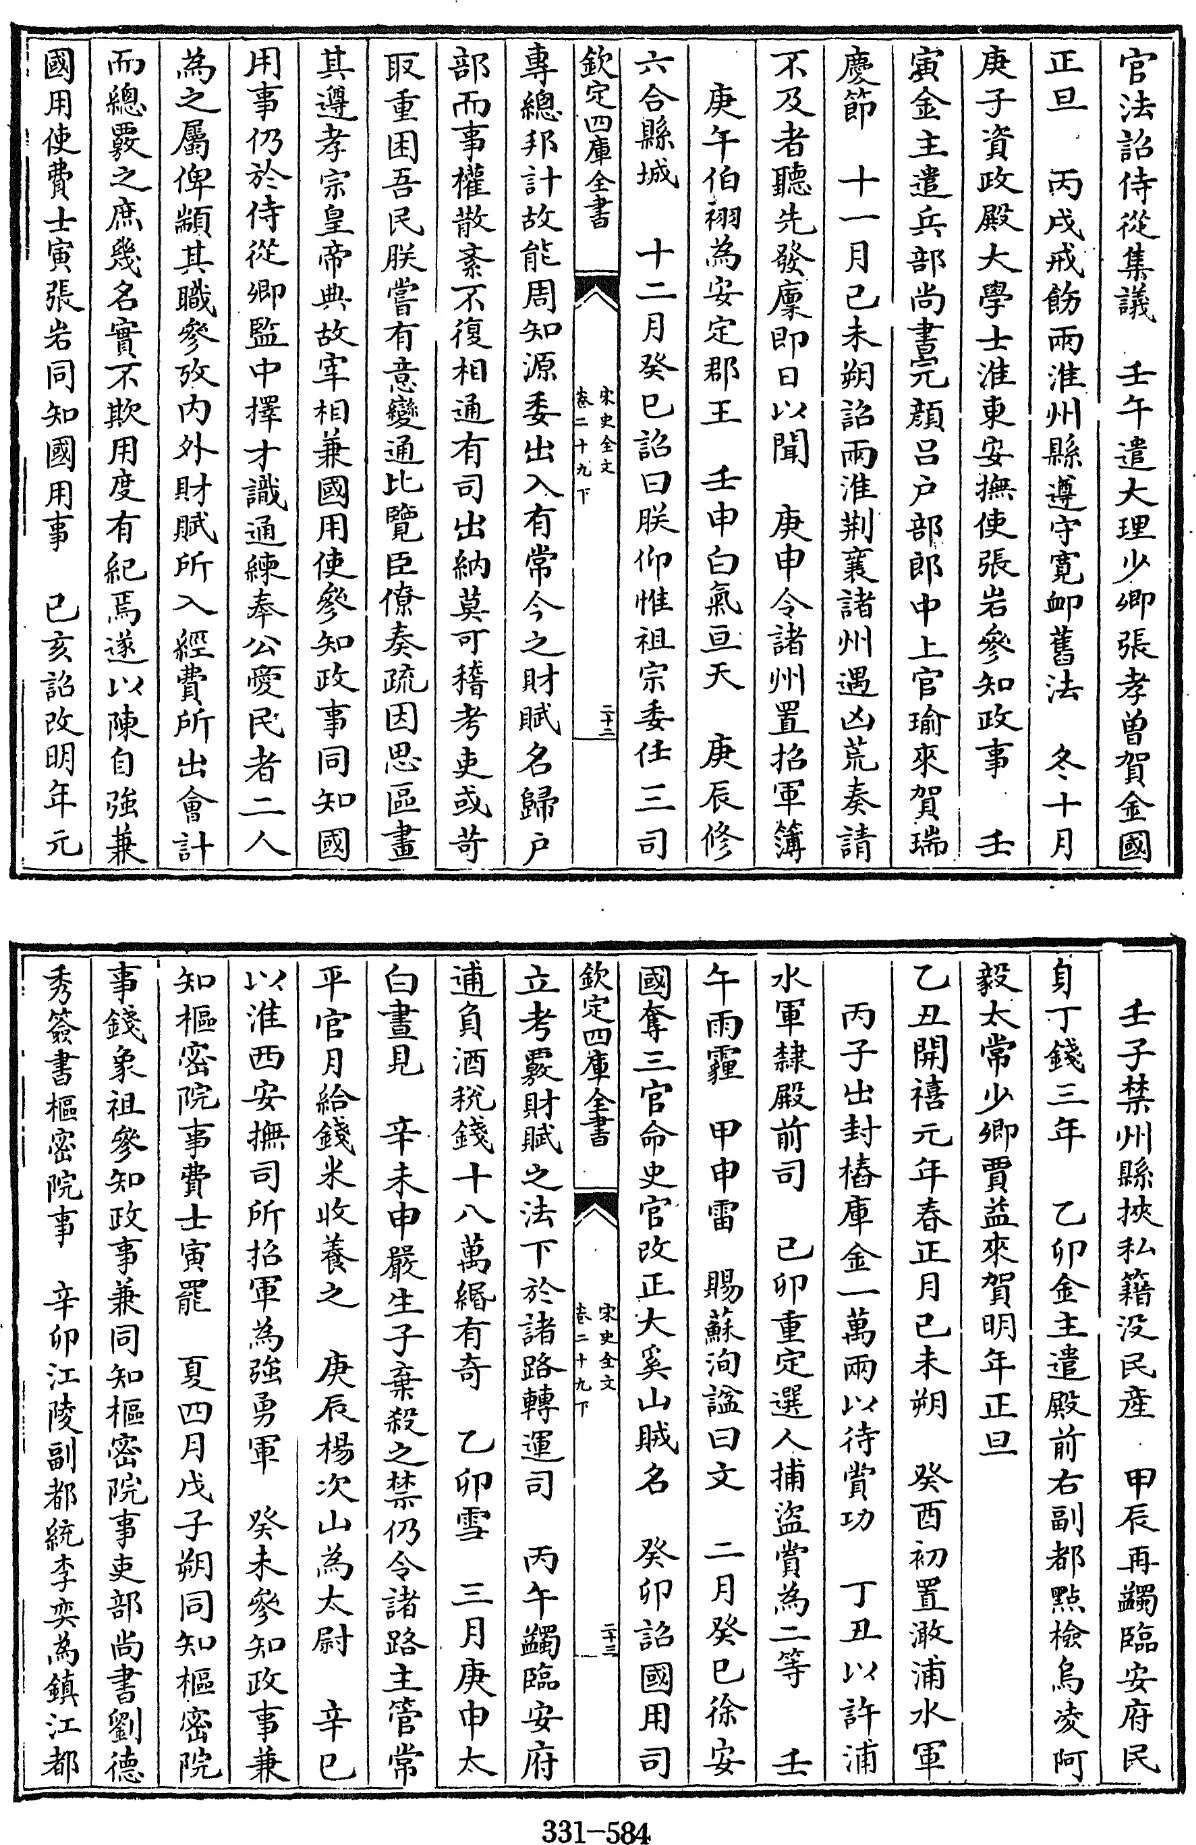 官法詔侍從集議　壬午遣大理少卿張孝曾賀金國
正旦　丙戌戒飭兩淮州縣遵守寛卹舊法　冬十月
庚子資政殿大學士淮東安撫使張岩參知政事　壬
寅金主遣兵部尚書完顔呂户部郎中上官瑜來賀瑞
慶節　十一月己未朔詔兩淮荆襄諸州遇凶荒奏請
不及者聽先發廩即日以聞　庚申令諸州置招軍簿
庚午伯栩為安定郡王　壬申白氣亘天　庚辰修
六合縣城　十二月癸巳詔曰朕仰惟祖宗委任三司
欽定四庫全書
宋史全文
卷二十九下
二十二
專總邦計故能周知源委出入有常今之財賦名歸户
部而事權散紊不復相通有司出納莫可稽考吏或苛
取重困吾民朕嘗有意變通比覽臣僚奏疏因思區畫
其遵孝宗皇帝典故宰相兼國用使參知政事同知國
用事仍於侍從卿監中擇才識通練奉公愛民者二人
為之屬俾顓其職參攷内外財賦所入經費所出會計
而總覈之庶幾名實不欺用度有紀焉遂以陳自強兼
國用使費士寅張岩同知國用事　己亥詔改明年元
壬子禁州縣挾私籍没民産　甲辰再蠲臨安府民
身丁錢三年　乙卯金主遣殿前右副都點檢烏凌阿
毅太常少卿賈益來賀明年正旦
乙丑開禧元年春正月己未朔　癸酉初置澉浦水軍
丙子出封樁庫金一萬兩以待賞功　丁丑以許浦
水軍隸殿前司　己卯重定選人捕盜賞為二等　壬
午雨霾　甲申雷　賜蘇洵諡曰文　二月癸巳徐安
國奪三官命史官改正大奚山賊名　癸卯詔國用司
欽定四庫全書
宋史全文
卷二十九下
二十三
立考覈財賦之法下於諸路轉運司　丙午蠲臨安府
逋負酒税錢十八萬緡有奇　乙卯雪　三月庚申太
白晝見　辛未申嚴生子棄殺之禁仍令諸路主管常
平官月給錢米收養之　庚辰楊次山為太尉　辛巳
以淮西安撫司所招軍為強勇軍　癸未參知政事兼
知樞密院事費士寅罷　夏四月戊子朔同知樞密院
事錢象祖參知政事兼同知樞密院事吏部尚書劉德
秀簽書樞密院事　辛卯江陵副都統李奕為鎮江都
331-584